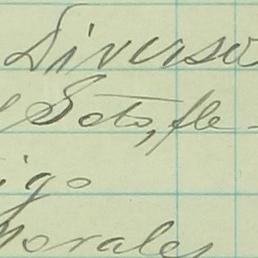 Diverso
Soto, fle-
igo
Morales